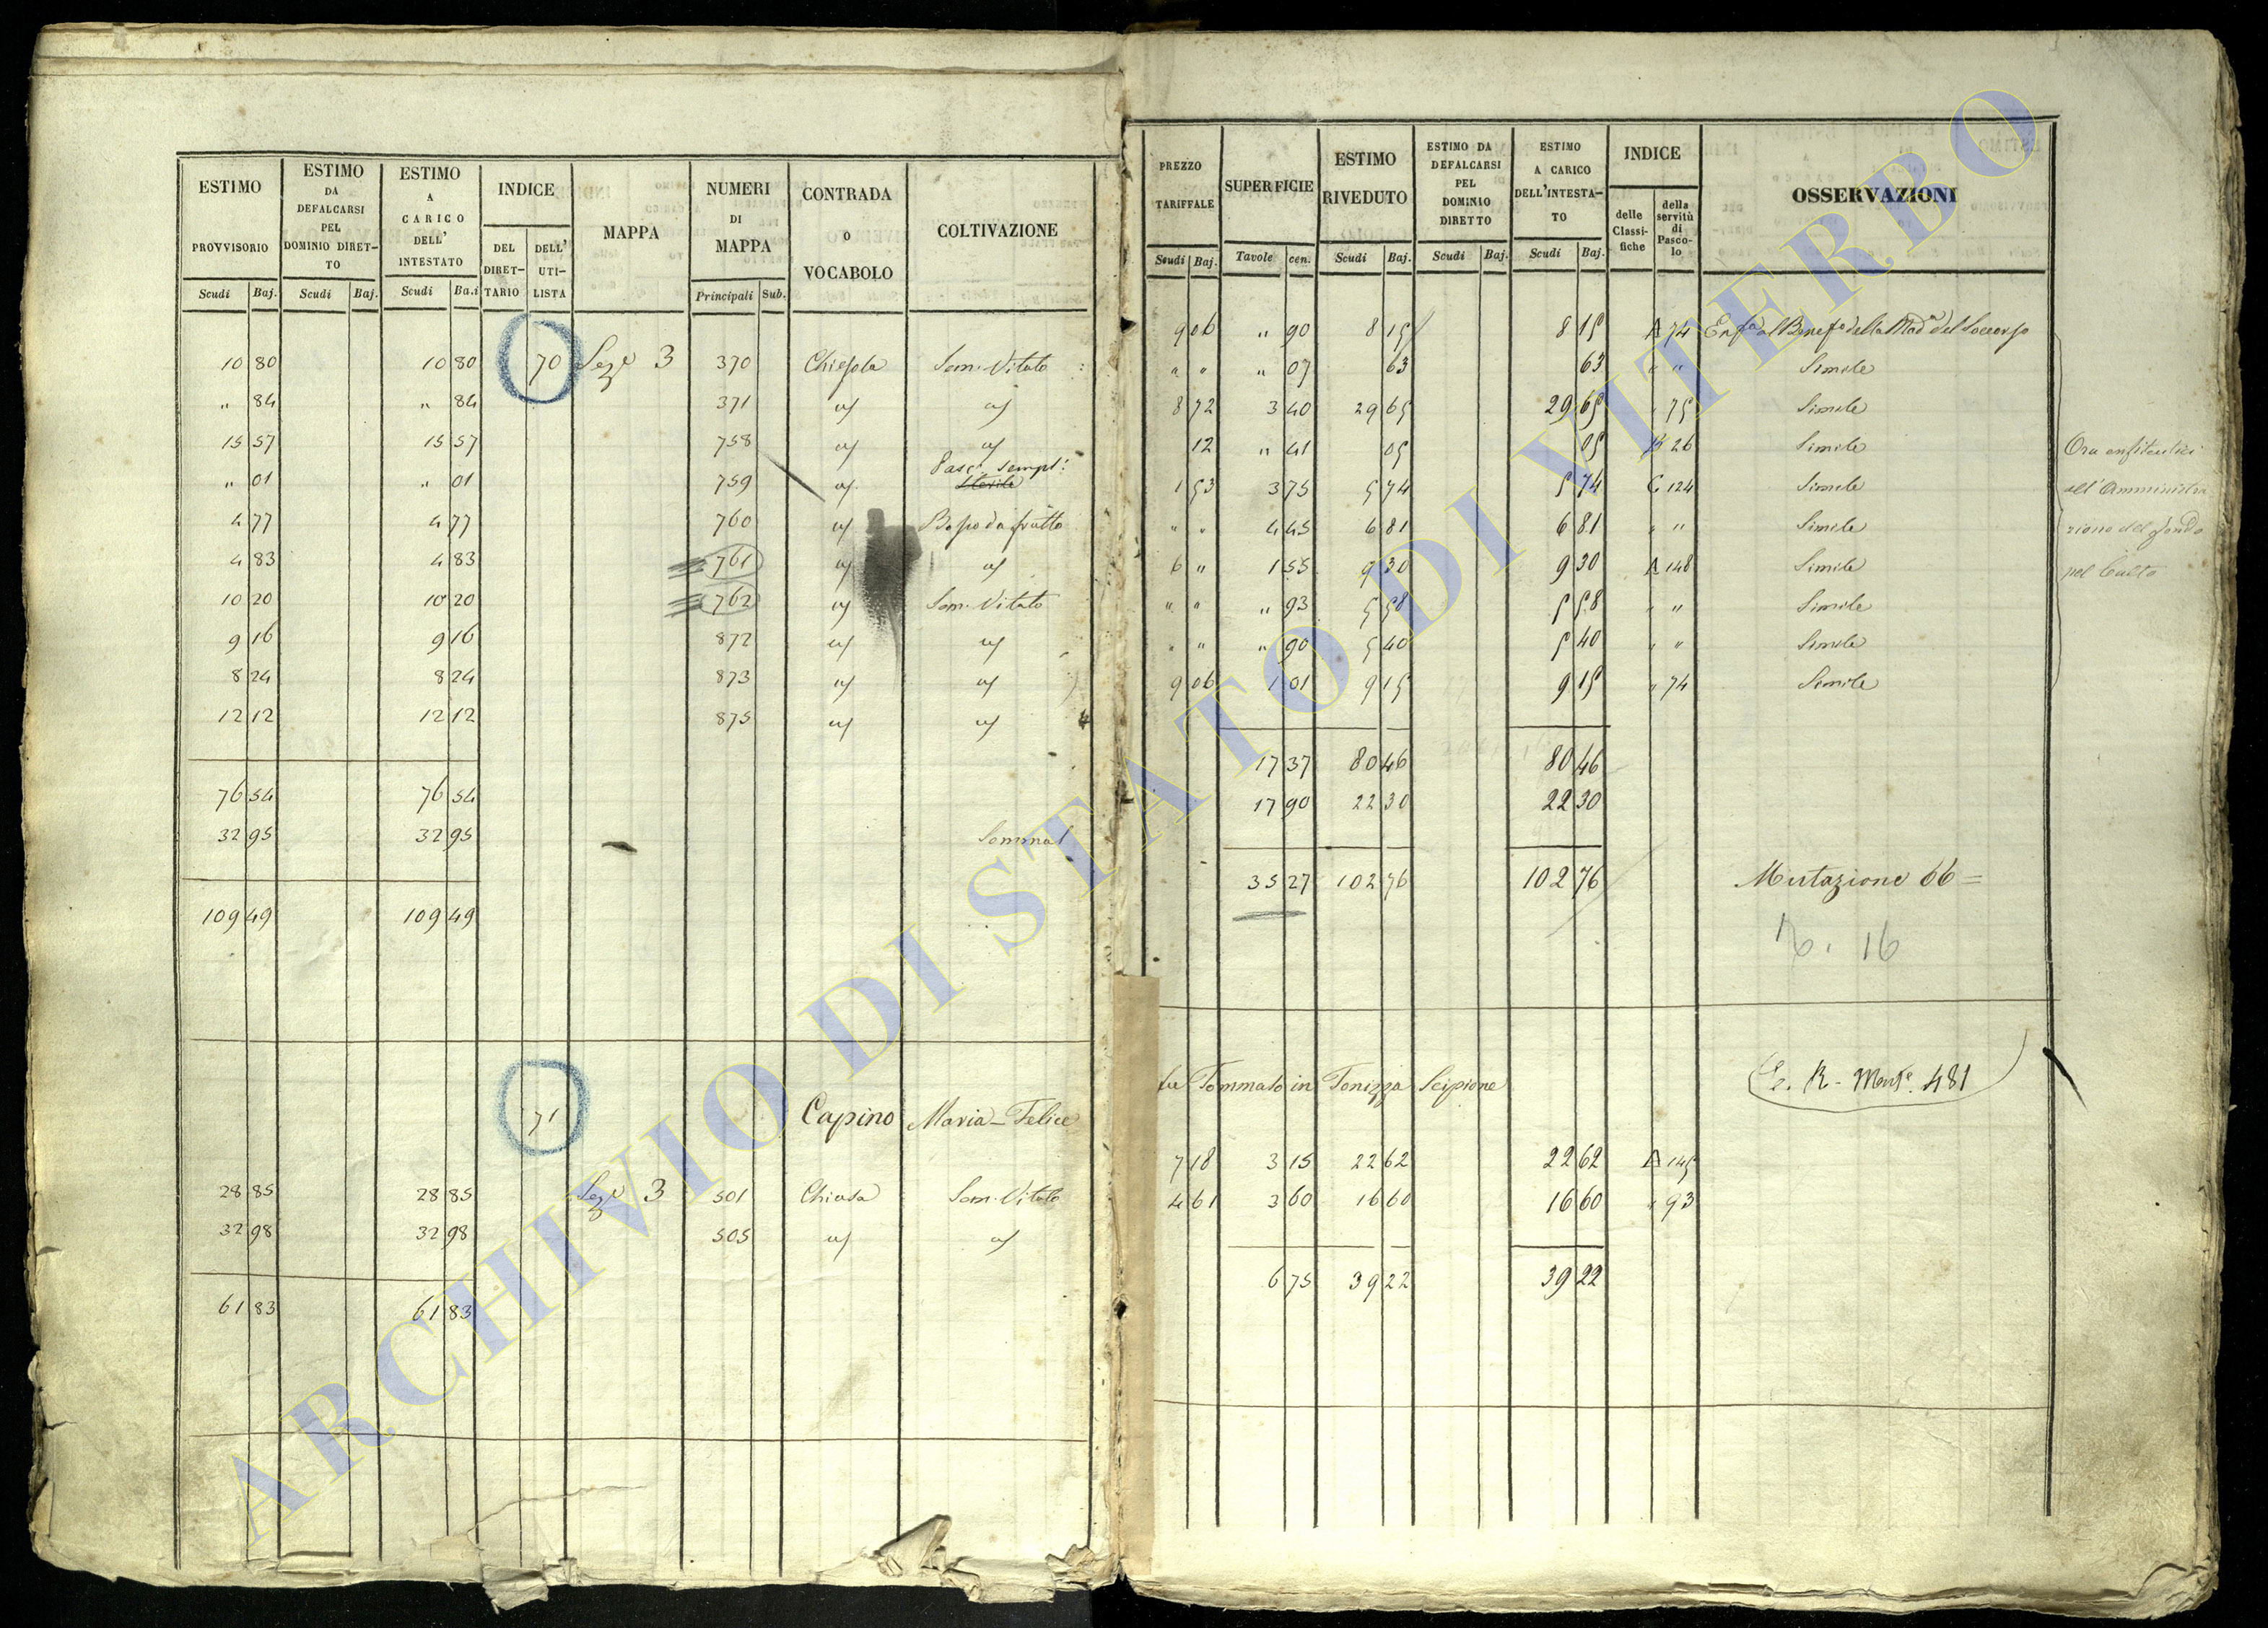 ESTIMO PROVVISORIO
ESTIMO DA DEFALCARSI PEL DOMINIO DIRET-TO
ESTIMO A CARICO DELL' INTESTATO
INDICE
DEL DIRET-TARIO
DELL' UTI-LISTA
MAPPA
NUMERI DI MAPPA
CONTRADA O VOCABOLO
COLTIVAZIONE
Scudi Baj. Scudi Baj. Scudi Ba.i Principali Sub.
10 80 10 80 70 Sez.e 3 370 Chiesola Sem. Vitato
" 84 " 84 371 a/ a/
15 57 15 57 758 a/ a/
" 01 " 01 759 a/ Pasc. sempl: Sterile
4 77 4 77 760 a/ Bosco da frutto
4 83 4 83 761 a/ a/
10 20 10 20 762 a/ Sem. Vitato
9 16 9 16 872 a/ a/
8 24 8 24 873 a/ a/
12 12 12 12 875 a/ a/
76 54 76 54
32 95 32 95 Somma
109 49 109 49
71 Capino Maria-Felice
28 85 28 85 Sez.e 3 501 Chiusa Sem. Vitato
32 98 32 98 505 a/ a/
61 83 61 83
PREZZO TARIFFALE
SUPERFICIE
ESTIMO RIVEDUTO
ESTIMO DA DEFALCARSI PEL DOMINIO DIRETTO
ESTIMO A CARICO DELL'INTESTA-TO
INDICE
delle Classi-fiche
della servitù di Pasco-lo
OSSERVAZIONI
Scudi Baj. Tavole cen. Scudi Baj. Scudi Baj. Scudi Baj.
9 06 " 90 8 15 8 15 A 74 Enf.a al Benef.o della Mad.a del Soccorso
" " " 07 63 63 " " Simile
8 72 3 40 29 65 29 65 " 75 Simile
12 " 41 05 05 B 26 Simile
1 53 3 75 5 74 5 74 C 124 Simile
" " 4 45 6 81 6 81 " " Simile
6 " 1 55 9 30 9 30 A 148 Simile
" " " 93 5 58 5 58 " " Simile
" " " 90 5 40 5 40 " " Simile
9 06 1 01 9 15 9 15 " 74 Simile
Ora enfiteutici
all'Amministra
zione del fondo
pel Culto
17 37 80 46 80 46
17 90 22 30 22 30
35 27 102 76 102 76 Mutazione 66 =
16
fu Tommaso in Tonizza Scipione
R. 481
7 18 3 15 22 62 22 62 A 145
4 61 3 60 16 60 16 60 " 93
6 75 39 22 39 22
ARCHIVIO DI STATO DI VITERBO